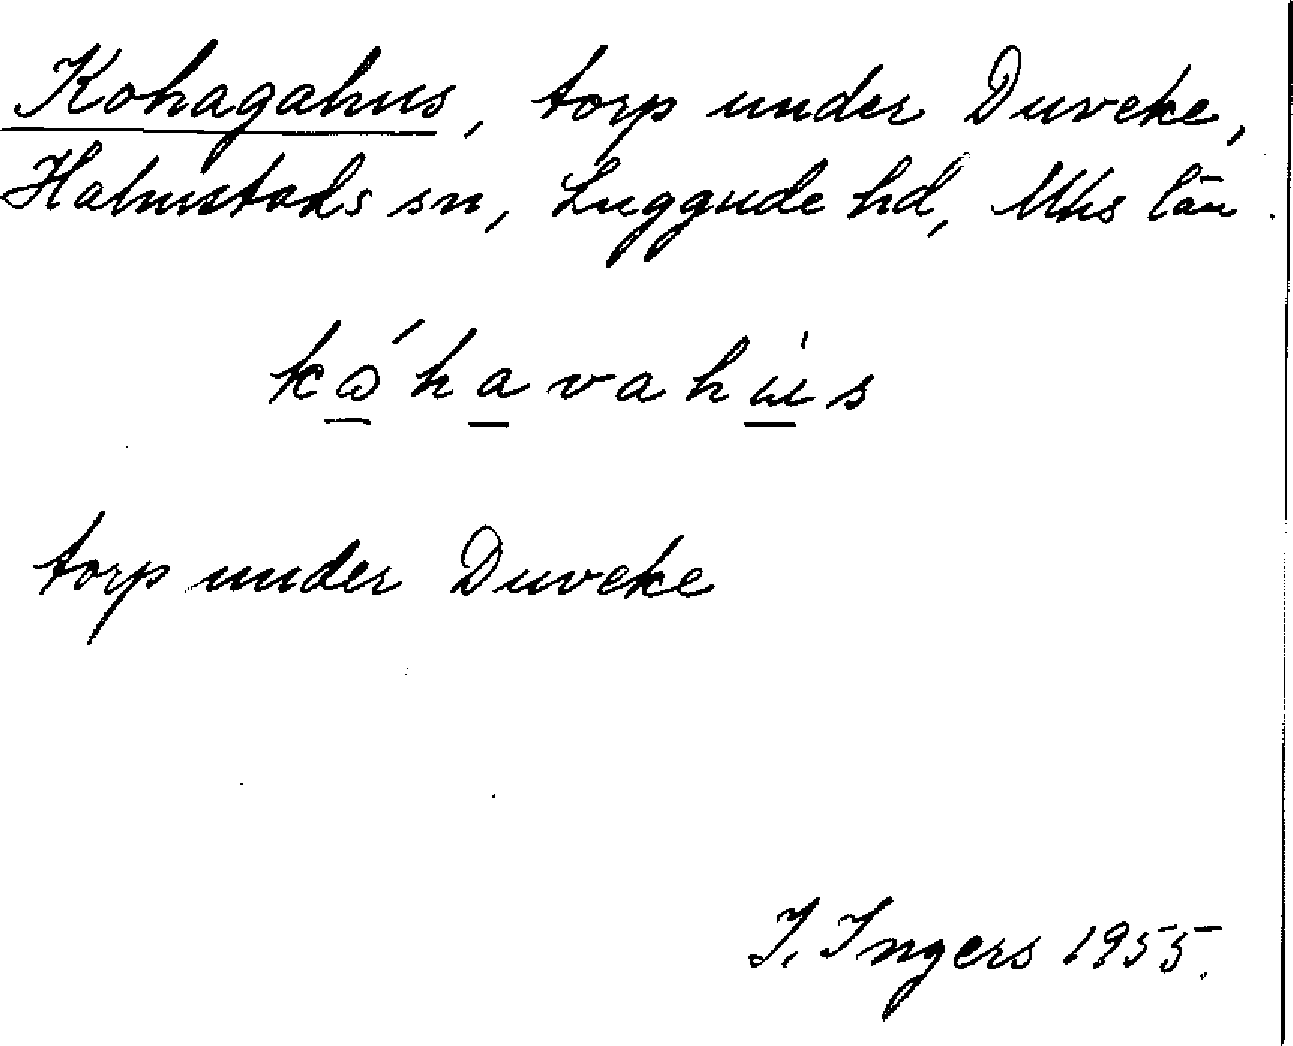 Kohagahus, torp under Duveke,
Halmstads sn, Luggude hd, Mhs län.
kɷ́havahùs
torp under Duveke
I. Ingers 1955.